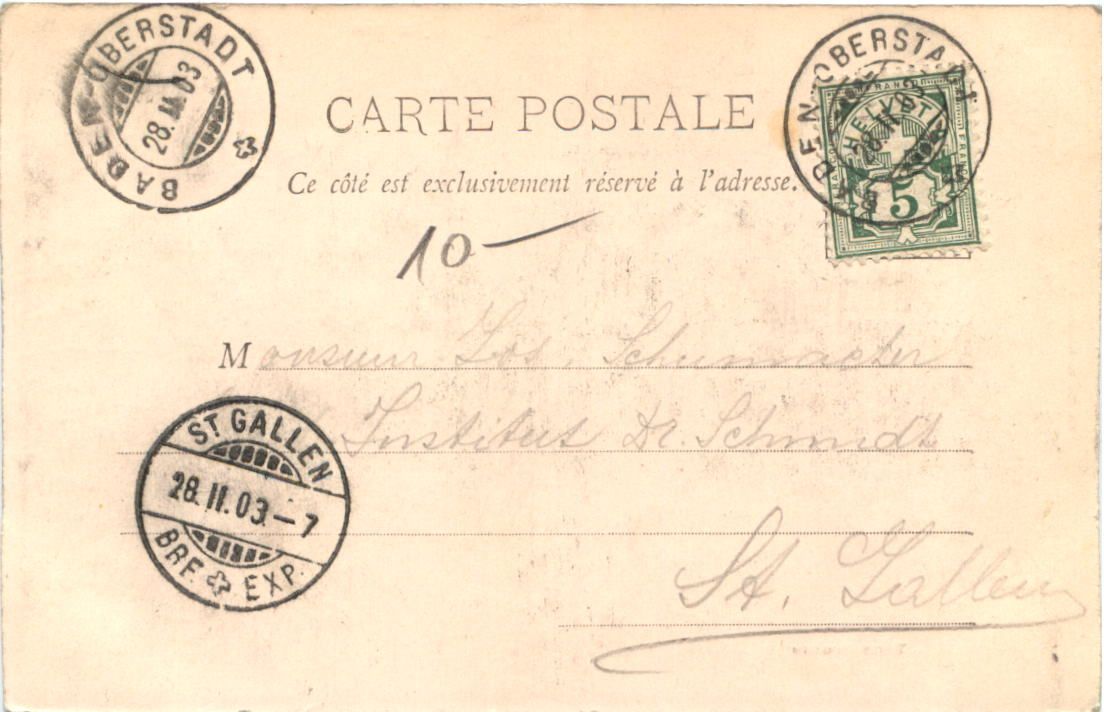 BADEN-OBERSTADT
28. II. 03
CARTE POSTALE
Ce côté est exclusivement réservé à l'adresse.
BADEN-OBERSTADT
28. II
FRANCO
HELVETIA
5
10 —
Monsieur Jos. Schumacher
Institut Dr. Schmidt
St. Gallen
ST. GALLEN
28. II. 03. – 7
BRF. EXP.